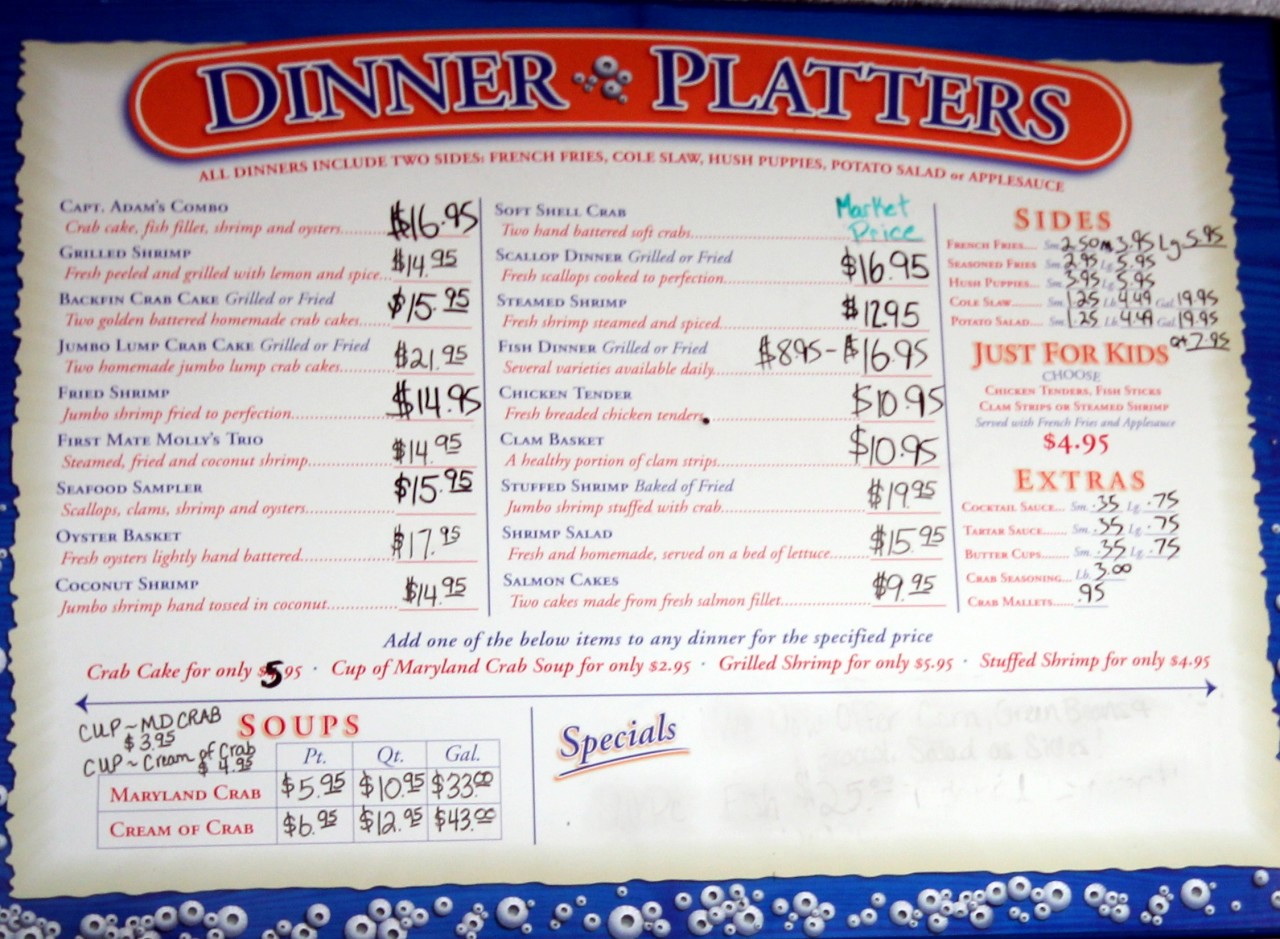 DINNER PLATTERS
ALL DINNERS INCLUDE TWO SIDES: FRENCH FRIES, COLE SLAW, HUSH PUPPIES, POTATO SALAD or APPLESAUCE
CAPT. ADAM'S COMBO
Crab cake, fish fillet, shrimp and oysters $16.95
GRILLED SHRIMP
Fresh peeled and grilled with lemon and spice... $14.95
BACKFIN CRAB CAKE Grilled or Fried
Two golden battered homemade crab cakes....... $15.95
JUMBO LUMP CRAB CAKE Grilled or Fried
Two homemade jumbo lump crab cakes........... $21.95
FRIED SHRIMP
Jumbo shrimp fried to perfection..................... $14.95
FIRST MATE MOLLY'S TRIO
Steamed, fried and coconut shrimp................... $14.95
SEAFOOD SAMPLER
Scallops, clams, shrimp and oysters................... $15.95
OYSTER BASKET
Fresh oysters lightly hand battered.................... $17.95
COCONUT SHRIMP
Jumbo shrimp hand tossed in coconut................ $14.95
SOFT SHELL CRAB
Two hand battered soft crabs................................ Market Price
SCALLOP DINNER Grilled or Fried
Fresh scallops cooked to perfection......................... $16.95
STEAMED SHRIMP
Fresh shrimp steamed and spiced.......................... $12.95
FISH DINNER Grilled or Fried
Several varieties available daily... $8.95-$16.95
CHICKEN TENDER
Fresh breaded chicken tenders $10.95
CLAM BASKET
A healthy portion of clam strips............................ $10.95
STUFFED SHRIMP Baked of Fried
Jumbo shrimp stuffed with crab............................ $19.95
SHRIMP SALAD
Fresh and homemade, served on a bed of lettuce....... $15.95
SALMON CAKES
Two cakes made from fresh salmon fillet................... $9.95
SIDES
FRENCH FRIES.... Sm. 2.50 m 3.95 Lg 5.95
SEASONED FRIES Sm. 2.95 Lg. 5.95
HUSH PUPPIES... Sm. 3.95 Lg. 5.95
COLE SLAW....... Sm. 1.25 Lb. 4.49 Gal. 19.95
POTATO SALAD... Sm. 1.25 Lb. 4.49 Gal. 19.95
qt 7.95
JUST FOR KIDS
CHOOSE
CHICKEN TENDERS, FISH STICKS
CLAM STRIPS OR STEAMED SHRIMP
Served with French Fries and Applesauce
$4.95
EXTRAS
COCKTAIL SAUCE... Sm. .35 Lg. .75
TARTAR SAUCE....... Sm. .35 Lg. .75
BUTTER CUPS....... Sm. .35 Lg. .75
CRAB SEASONING... Lb. 3.00
CRAB MALLETS...... .95
Add one of the below items to any dinner for the specified price
Crab Cake for only $5.95 · Cup of Maryland Crab Soup for only $2.95 · Grilled Shrimp for only $5.95 · Stuffed Shrimp for only $4.95
CUP ~ MD CRAB
$3.95
CUP ~ Cream of Crab
$4.95
SOUPS
Pt. Qt. Gal.
MARYLAND CRAB $5.95 $10.95 $33.00
CREAM OF CRAB $6.95 $12.95 $43.00
Specials